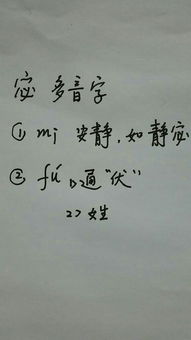 宓 多音字
① mì 安静,如静宓
② fú 1>通“伏”
2>姓